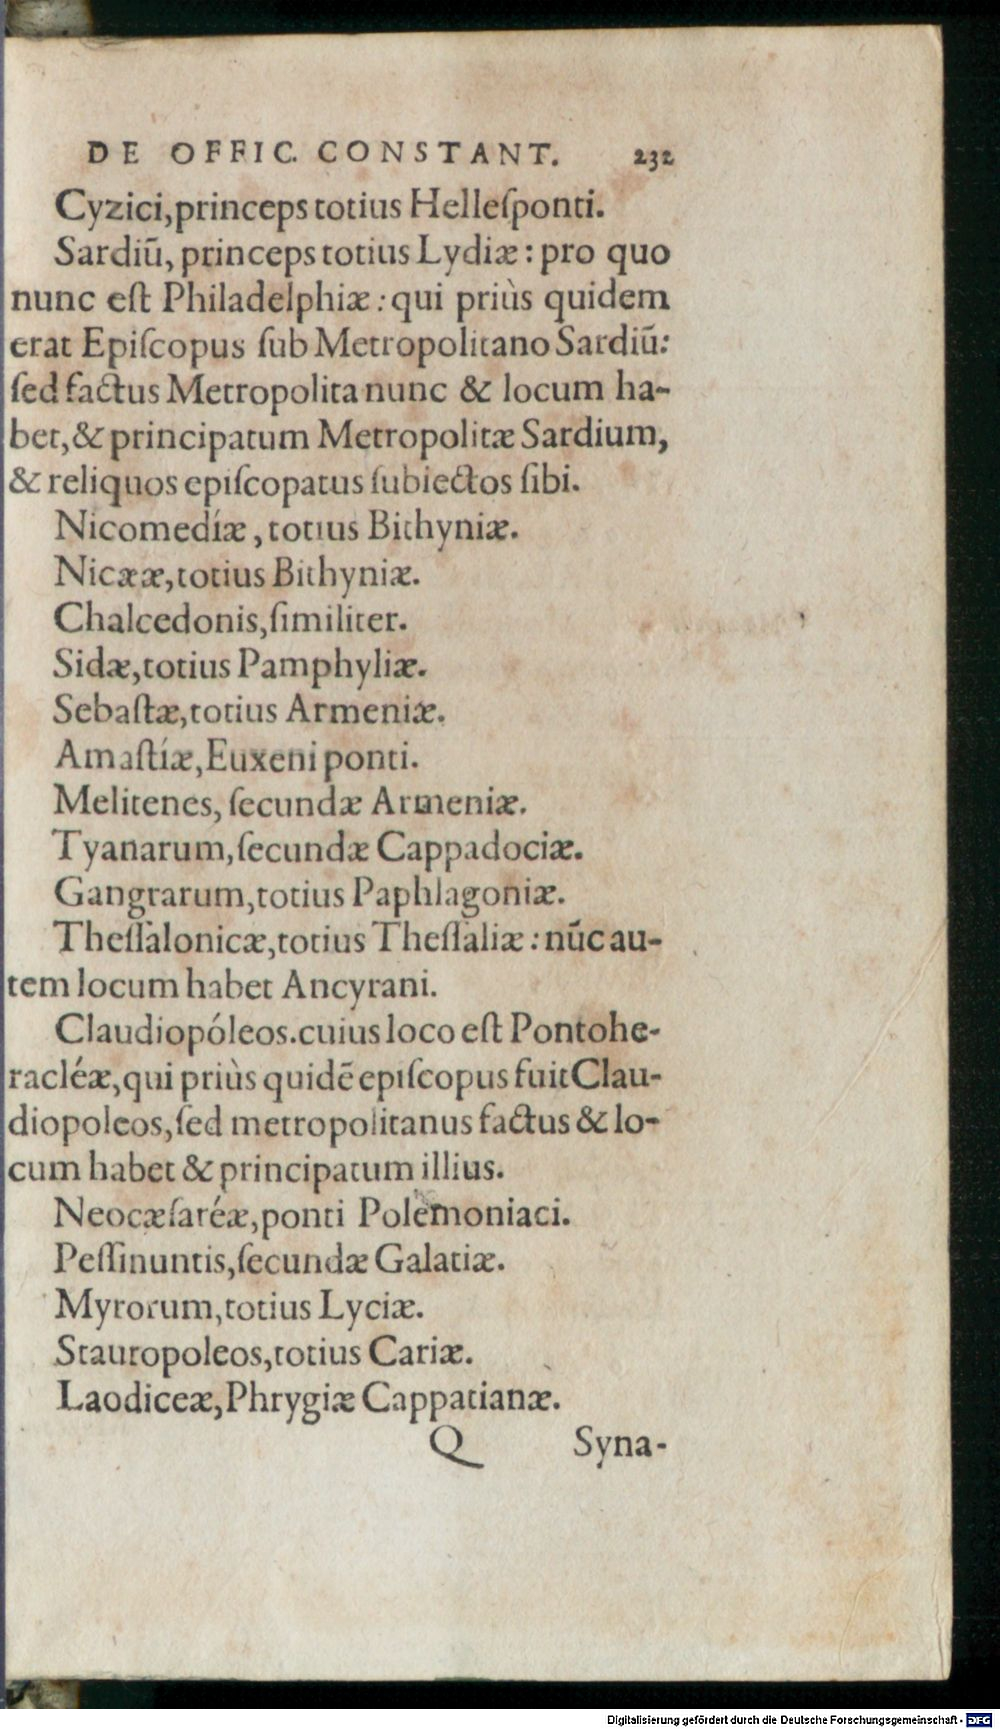 DE OFFIC. CONSTANT. 232
Cyzici,princeps totius Helleſponti.
Sardiū, princeps totius Lydiæ: pro quo
nunc eſt Philadelphiæ: qui priùs quidem
erat Epiſcopus ſub Metropolitano Sardiū:
ſed factus Metropolita nunc & locum ha-
bet,& principatum Metropolitæ Sardium,
& reliquos epiſcopatus ſubiectos ſibi.
Nicomedíæ, totius Bithyniæ.
Nicææ,totius Bithyniæ.
Chalcedonis,ſimiliter.
Sidæ,totius Pamphyliæ.
Sebaſtæ,totius Armeniæ.
Amaſtíæ,Euxeni ponti.
Melitenes, ſecundæ Armeniæ.
Tyanarum,ſecundæ Cappadociæ.
Gangrarum,totius Paphlagoniæ.
Theſſalonicæ,totius Theſſaliæ: nūc au-
tem locum habet Ancyrani.
Claudiopóleos.cuius loco eſt Pontohe-
racléæ,qui priùs quidē epiſcopus fuit Clau-
diopoleos,ſed metropolitanus factus & lo-
cum habet & principatum illius.
Neocæſaréæ,ponti Polemoniaci.
Peſſinuntis,ſecundæ Galatiæ.
Myrorum,totius Lyciæ.
Stauropoleos,totius Cariæ.
Laodiceæ,Phrygiæ Cappatianæ.
Q Syna-
Digitalisierung gefördert durch die Deutsche Forschungsgemeinschaft - DFG